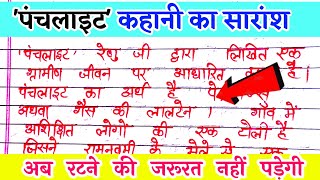 'पंचलाइट' कहानी का सारांश
'पंचलाइट' रेणु जी द्वारा लिखित एक
ग्रामीण जीवन पर आधारित है।
पंचलाइट का अर्थ है
अथवा गैस की लालटेन। गाँव में
अशिक्षित लोगों की एक टोली है
जिसने रामनवमी के मेले से
अब रटने की जरूरत नहीं पड़ेगी